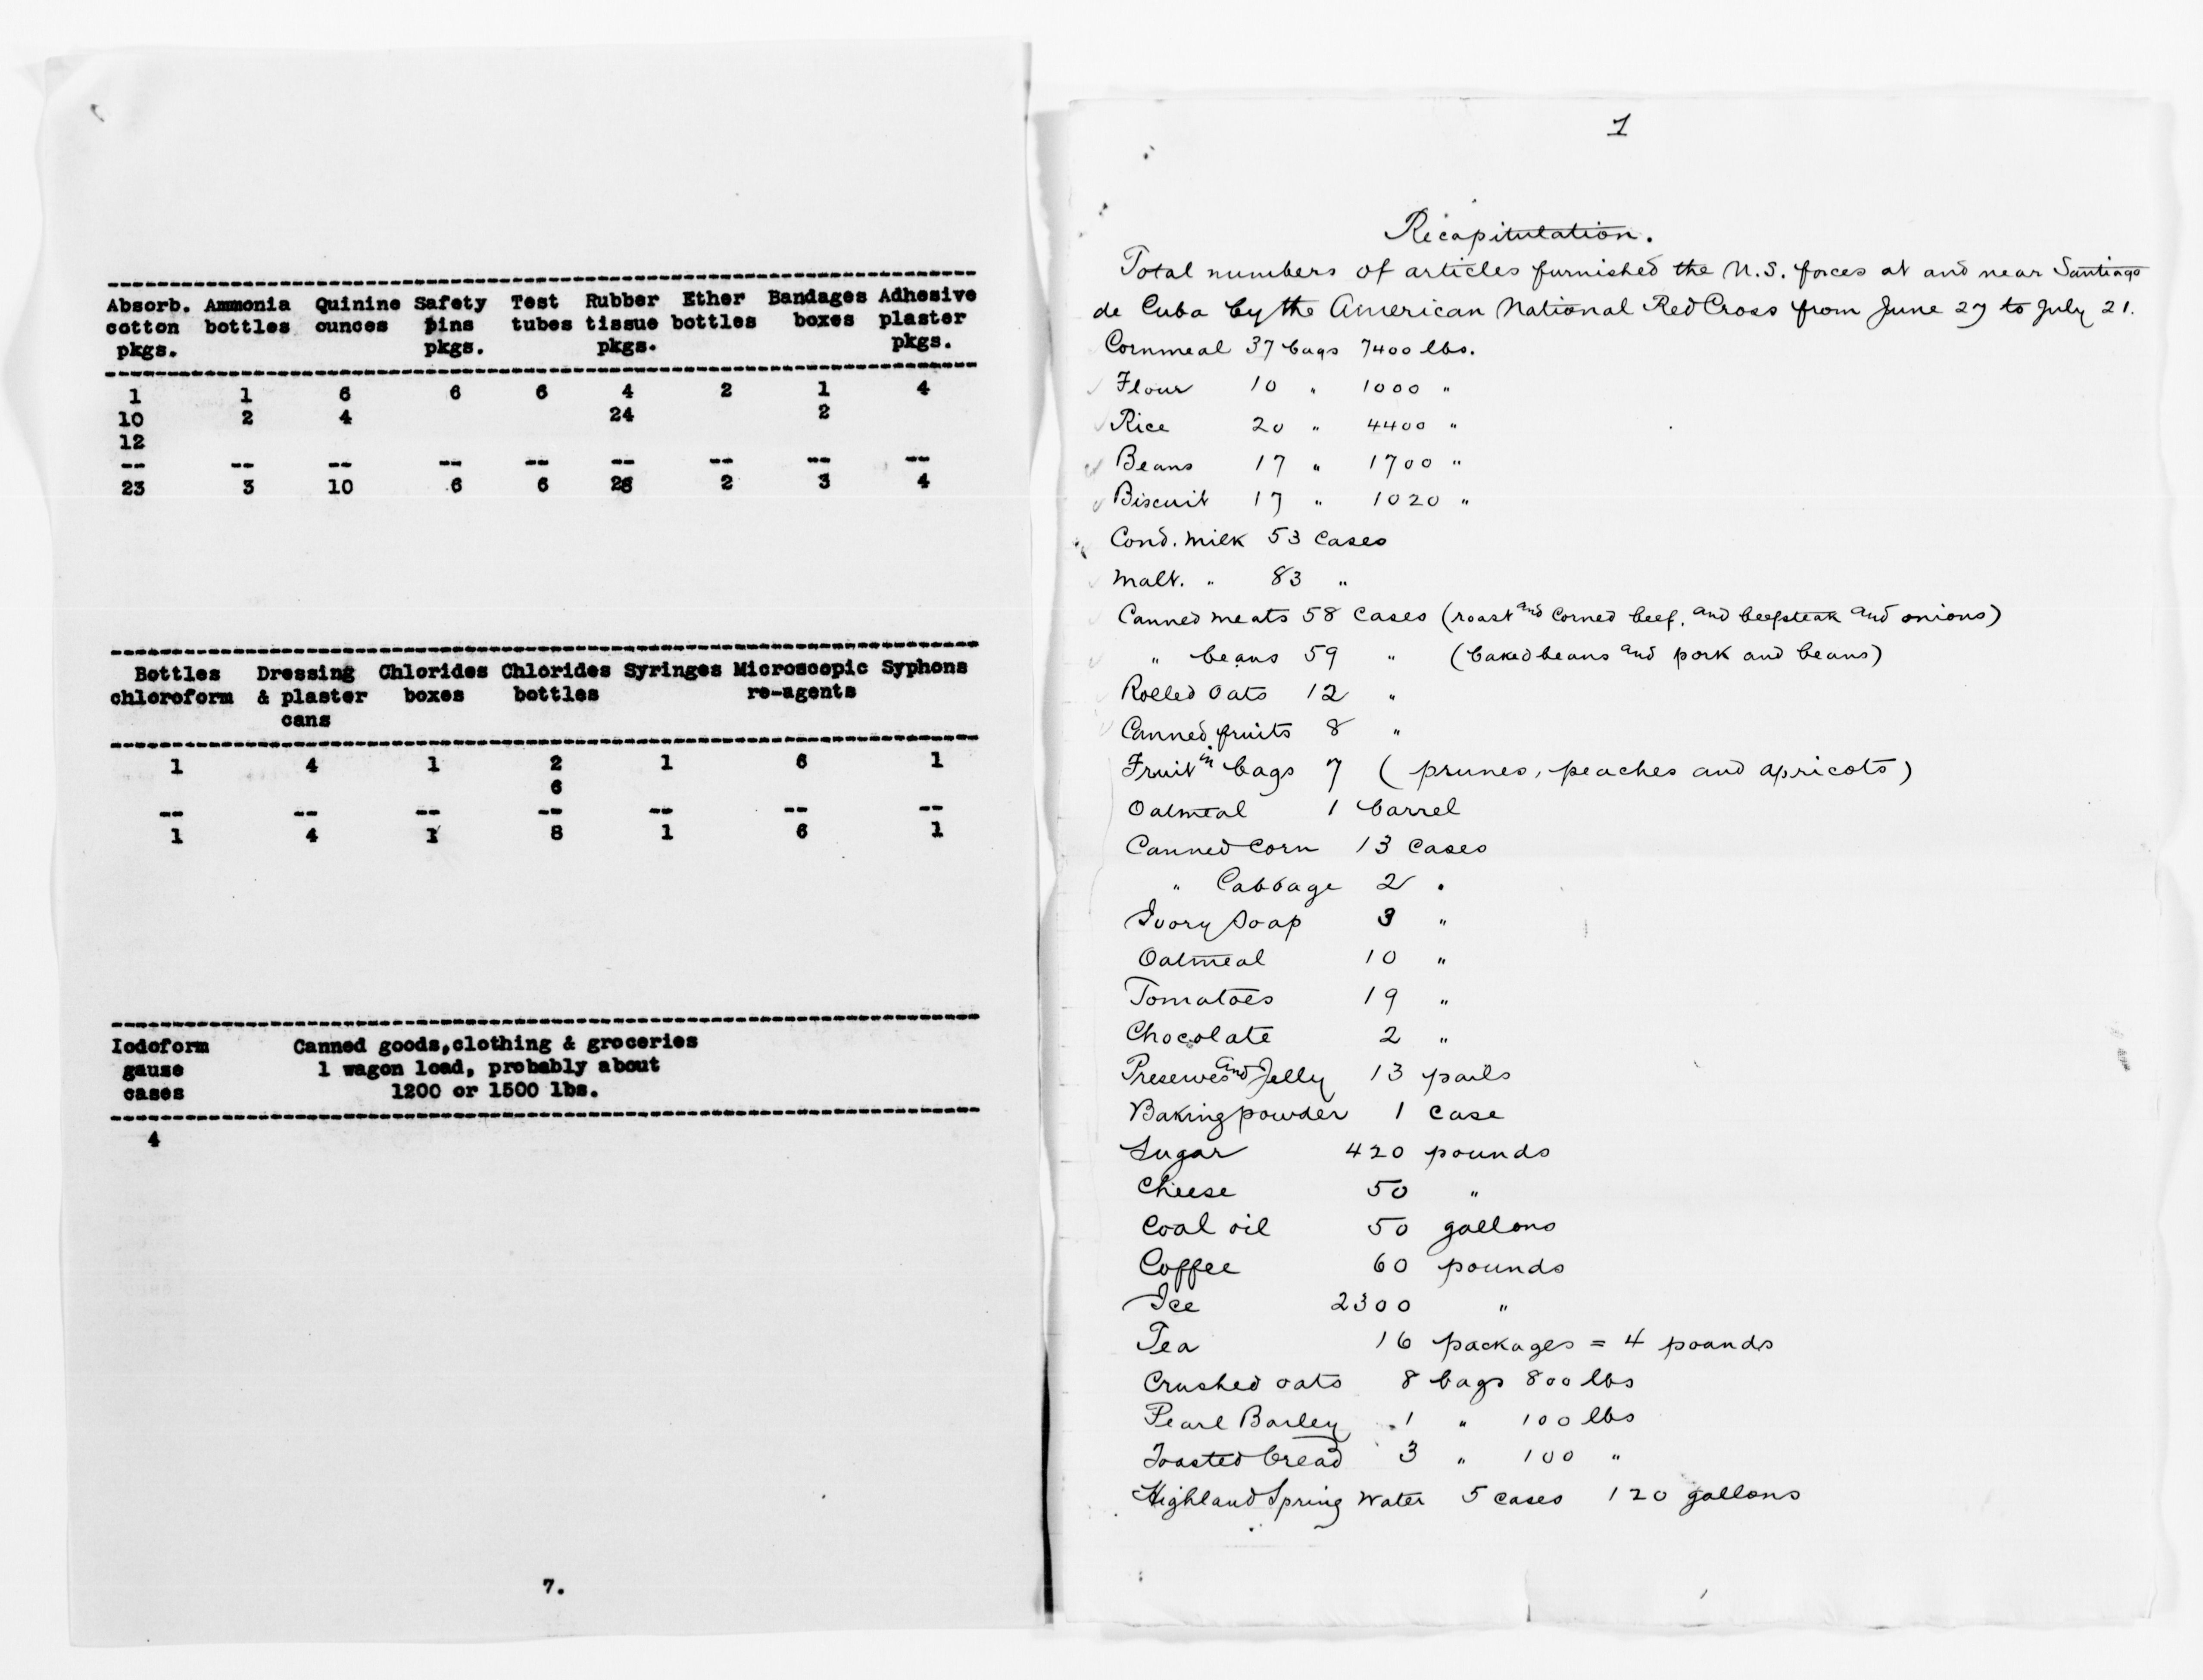 Absorb. Ammonia Quinine Safety Test Rubber Ether Bandages Adhesive
cotton bottles ounces pins tubes tissue bottles boxes plaster
pkgs. pkgs. pkgs. pkgs.
1 1 6 6 6 4 2 1 4
10 2 4 24 2
12
-- -- -- -- -- -- -- -- --
23 3 10 6 6 28 2 3 4
Bottles Dressing Chlorides Chlorides Syringes Microscopic Syphons
chloroform & plaster boxes bottles re-agents
cans
1 4 1 2 1 6 1
6
-- -- -- -- -- -- --
1 4 1 8 1 6 1
Iodoform Canned goods,clothing & groceries
gause 1 wagon load, probably about
cases 1200 or 1500 lbs.
4
7.
1
Recapitulation.
Total numbers of articles furnished the U.S. forces at and near Santiago
de Cuba by the American National Red Cross from June 27 to July 21.
Cornmeal 37 bags 7400 lbs.
Flour 10 " 1000 "
Rice 20 " 4400 "
Beans 17 " 1700 "
Biscuit 17 " 1020 "
Cond. milk 53 cases
Malt. " 83 "
Canned meats 58 cases (roast and corned beef, and beefsteak and onions)
" beans 59 " (baked beans and pork and beans)
Rolled Oats 12 "
Canned fruits 8 "
Fruit in bags 7 (prunes, peaches and apricots)
Oatmeal 1 barrel
Canned Corn 13 cases
" Cabbage 2 "
Ivory Soap 3 "
Oatmeal 10 "
Tomatoes 19 "
Chocolate 2 "
Preserves and Jelly 13 pails
Baking powder 1 case
Sugar 420 pounds
Cheese 50 "
Coal oil 50 gallons
Coffee 60 pounds
Ice 2300 "
Tea 16 packages = 4 pounds
Crushed oats 8 bags 800 lbs
Pearl Barley 1 " 100 lbs
Toasted bread 3 " 100 "
Highland Spring Water 5 cases 120 gallons